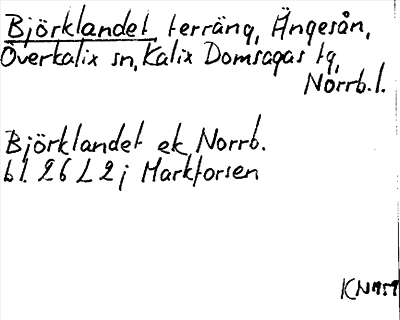 Björklandet terräng, Ängesån,
Överkalix sn, Kalix Domsagas tg,
Norrb. l.
Björklandet ek, Norrb.
bl. 26 L 2 j Marktorsen